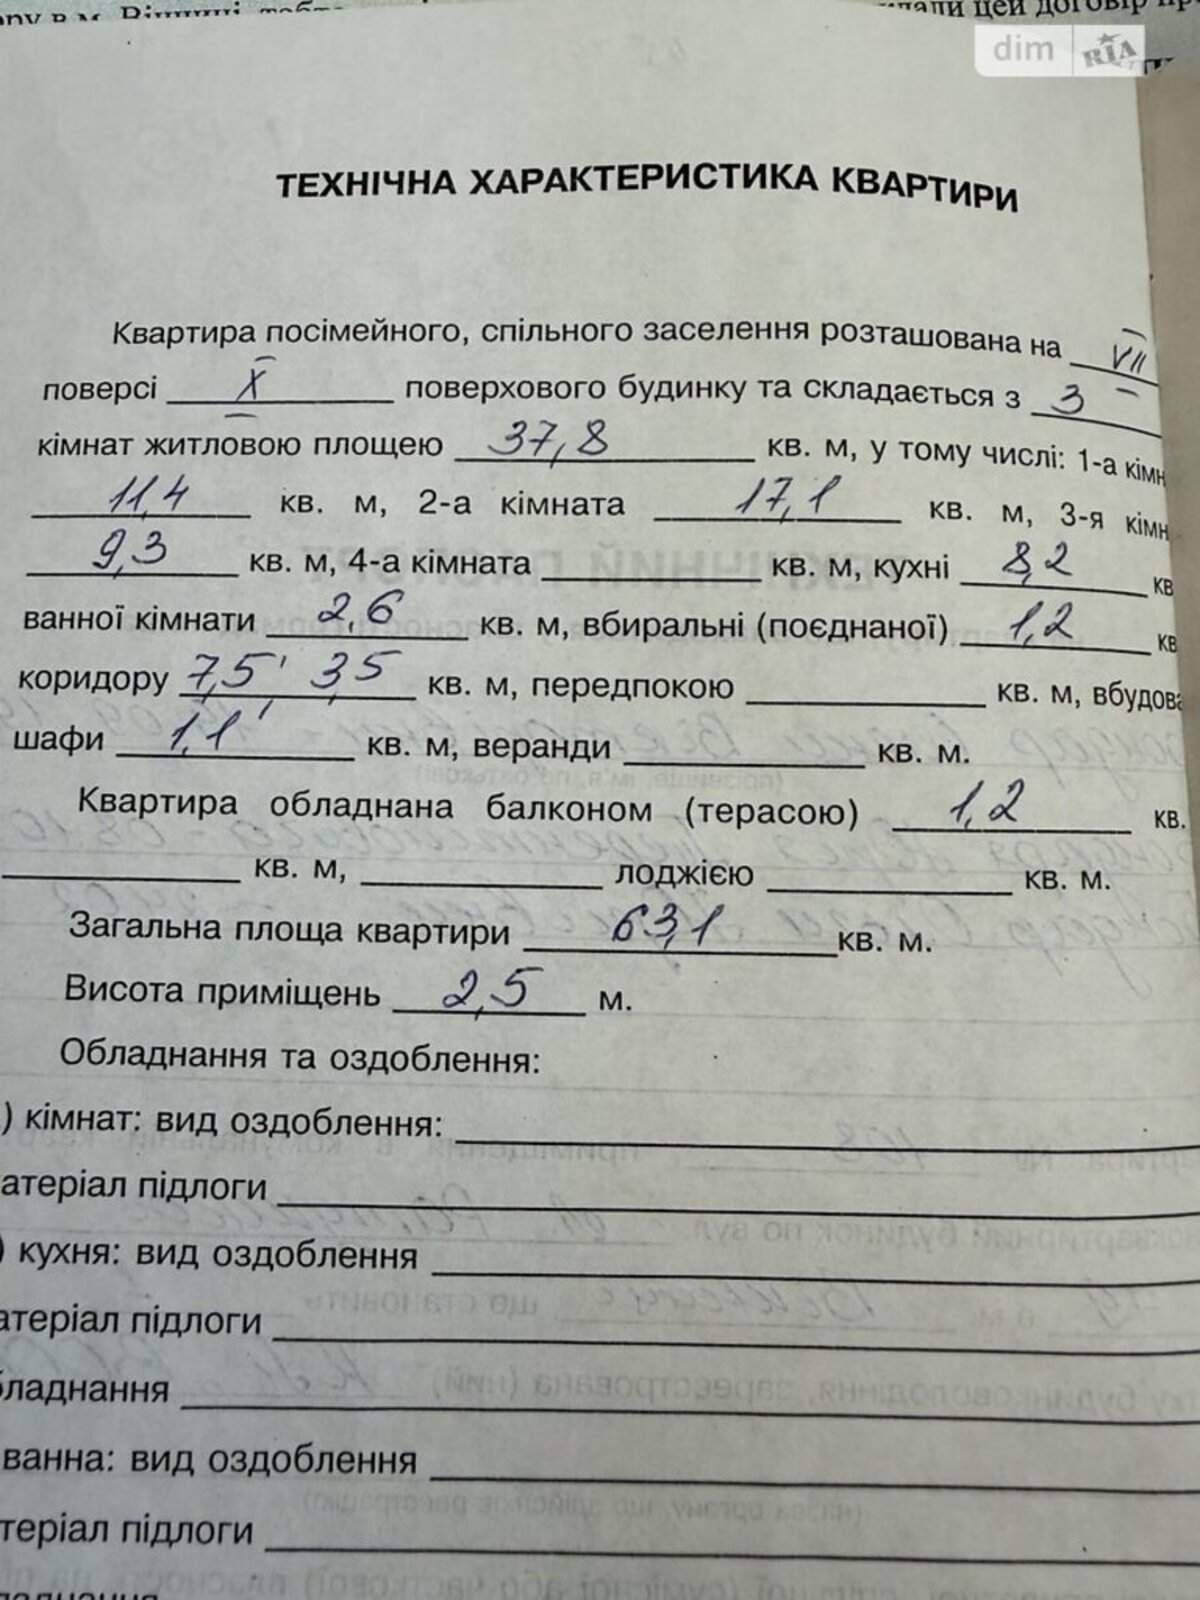 ору в м. Вінниці,
цей договір
dim RIA
ТЕХНІЧНА ХАРАКТЕРИСТИКА КВАРТИРИ
Квартира посімейного, спільного заселення розташована на VII
поверсі X поверхового будинку та складається з 3
кімнат житловою площею 37,8 кв. м, у тому числі: 1-а кімн
11,4 кв. м, 2-а кімната 17,1 кв. м, 3-я кімн
9,3 кв. м, 4-а кімната кв. м, кухні 8,2 кв
ванної кімнати 2,6 кв. м, вбиральні (поєднаної) 1,2 кв
коридору 7,5, 3,5 кв. м, передпокою кв. м, вбудова
шафи 1,1 кв. м, веранди кв. м.
Квартира обладнана балконом (терасою) 1,2 кв.
кв. м, лоджією кв. м.
Загальна площа квартири 63,1 кв. м.
Висота приміщень 2,5 м.
Обладнання та оздоблення:
) кімнат: вид оздоблення:
атеріал підлоги
) кухня: вид оздоблення
атеріал підлоги
бладнання
ванна: вид оздоблення
теріал підлоги